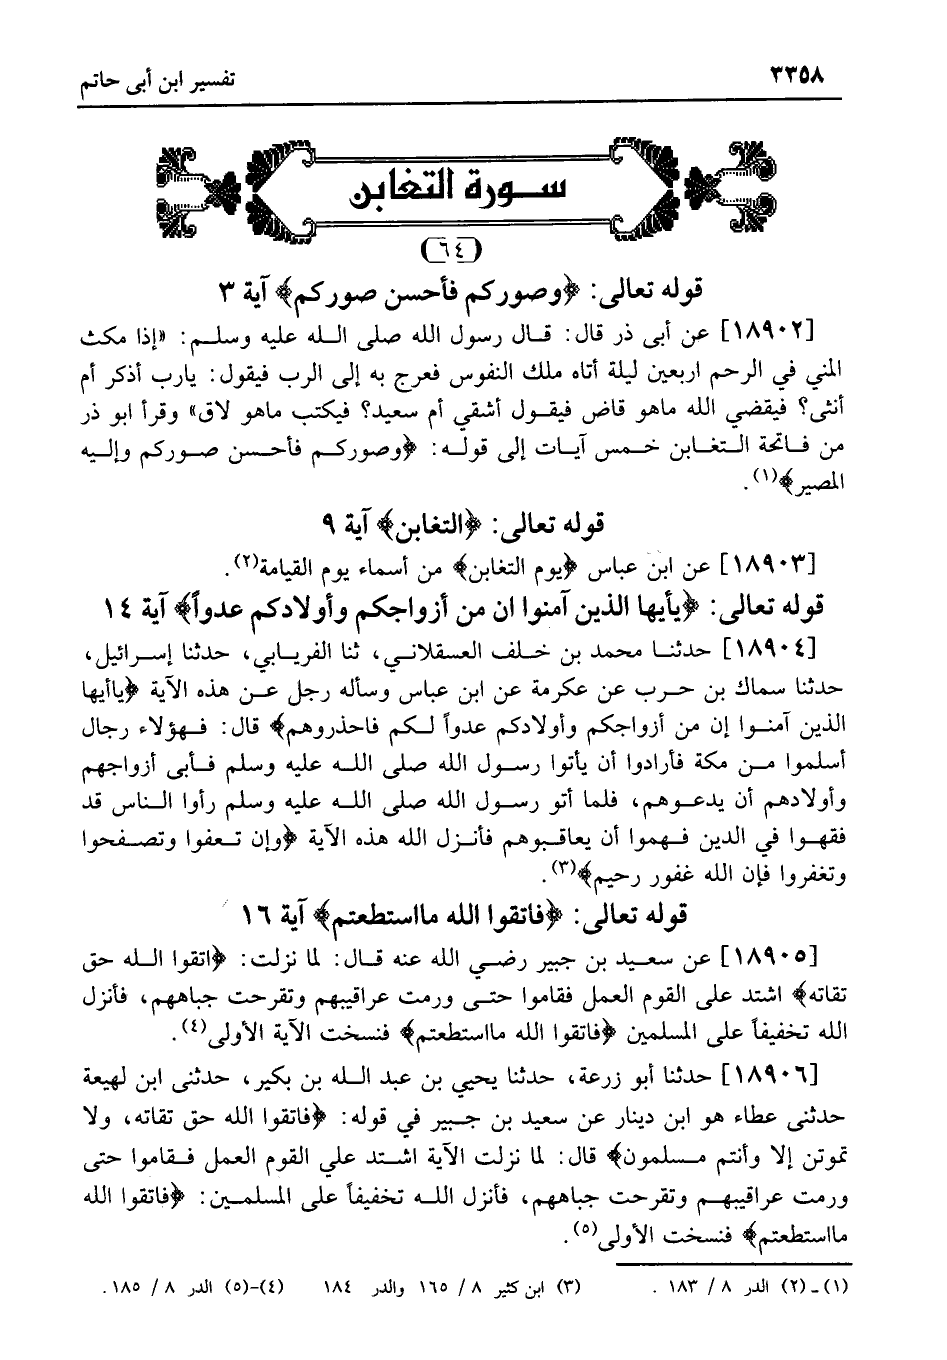 ٣٣٥٨ تفسير ابن أبى حاتم
سـورة التغابن
(٦٤)
قوله تعالى: ﴿وصوركم فأحسن صوركم﴾ آية ٣
[١٨٩٠٢] عن أبى ذر قال: قـال رسول الله صلى الـله عليه وسلـم: «إذا مكث
المني في الرحم اربعين ليلة أتاه ملك النفوس فعرج به إلى الرب فيقول: يارب أذكر أم
أنثى؟ فيقضي الله ماهو قاض فيقـول أشقي أم سعيد؟ فيكتب ماهو لاق» وقرأ ابو ذر
من فـاتحة الـتغـابن خـمس آيـات إلى قولـه: ﴿وصوركـم فأحـسن صـوركم وإليه
المصير﴾(١).
قوله تعالى: ﴿التغابن﴾ آية ٩
[١٨٩٠٣] عن ابن عباس ﴿يوم التغابن﴾ من أسماء يوم القيامة(٢).
قوله تعالى: ﴿يأيها الذين آمنوا ان من أزواجكم وأولادكم عدواً﴾ آية ١٤
[١٨٩٠٤] حدثنـا محمد بن خـلف العسقلاني، ثنا الفريـابي، حدثنا إسـرائيل،
حدثنا سماك بن حـرب عن عكرمة عن ابن عباس وسأله رجل عـن هذه الآية ﴿ياأيها
الذين آمنـوا إن من أزواجكم وأولادكم عدواً لـكم فاحذروهم﴾ قال: فـهؤلاء رجال
أسلموا مـن مكة فأرادوا أن يأتوا رسـول الله صلى اللـه عليه وسلم فـأبى أزواجهم
وأولادهم أن يدعـوهم، فلما أتو رسـول الله صلى اللـه عليه وسلم رأوا الـناس قد
فقهـوا في الدين فـهموا أن يعاقـبوهم فأنـزل الله هذه الآية ﴿وإن تـعفوا وتصـفحوا
وتغفروا فإن الله غفور رحيم﴾(٣).
قوله تعالى: ﴿فاتقوا الله مااستطعتم﴾ آية ١٦
[١٨٩٠٥] عن سعيـد بن جبير رضـي الله عنه قـال: لما نزلت: ﴿اتقوا الـله حق
تقاته﴾ اشتد على القوم العمل فقاموا حتـى ورمت عراقيبهم وتقرحت جباههم، فأنزل
الله تخفيفاً على المسلمين ﴿فاتقوا الله مااستطعتم﴾ فنسخت الآية الأولى(٤).
[١٨٩٠٦] حدثنا أبو زرعة، حدثنا يحيي بن عبد الـله بن بكير، حدثنى ابن لهيعة
حدثنى عطاء هو ابن دينار عن سعيد بن جـبير في قوله: ﴿فاتقوا الله حق تقاته، ولا
تموتن إلا وأنتم مـسلمون﴾ قال: لما نزلت الآية اشـتد علي القوم العمل فـقاموا حتى
ورمت عراقيبهـم وتقرحت جباههم، فأنزل اللـه تخفيفاً على المسلمـين: ﴿فاتقوا الله
مااستطعتم﴾ فنسخت الأولى(٥).
(١) ـ (٢) الدر ٨ / ١٨٣ . (٣) ابن كثير ٨ / ١٦٥ والدر ١٨٤ (٤)-(٥) الدر ٨ / ١٨٥ .